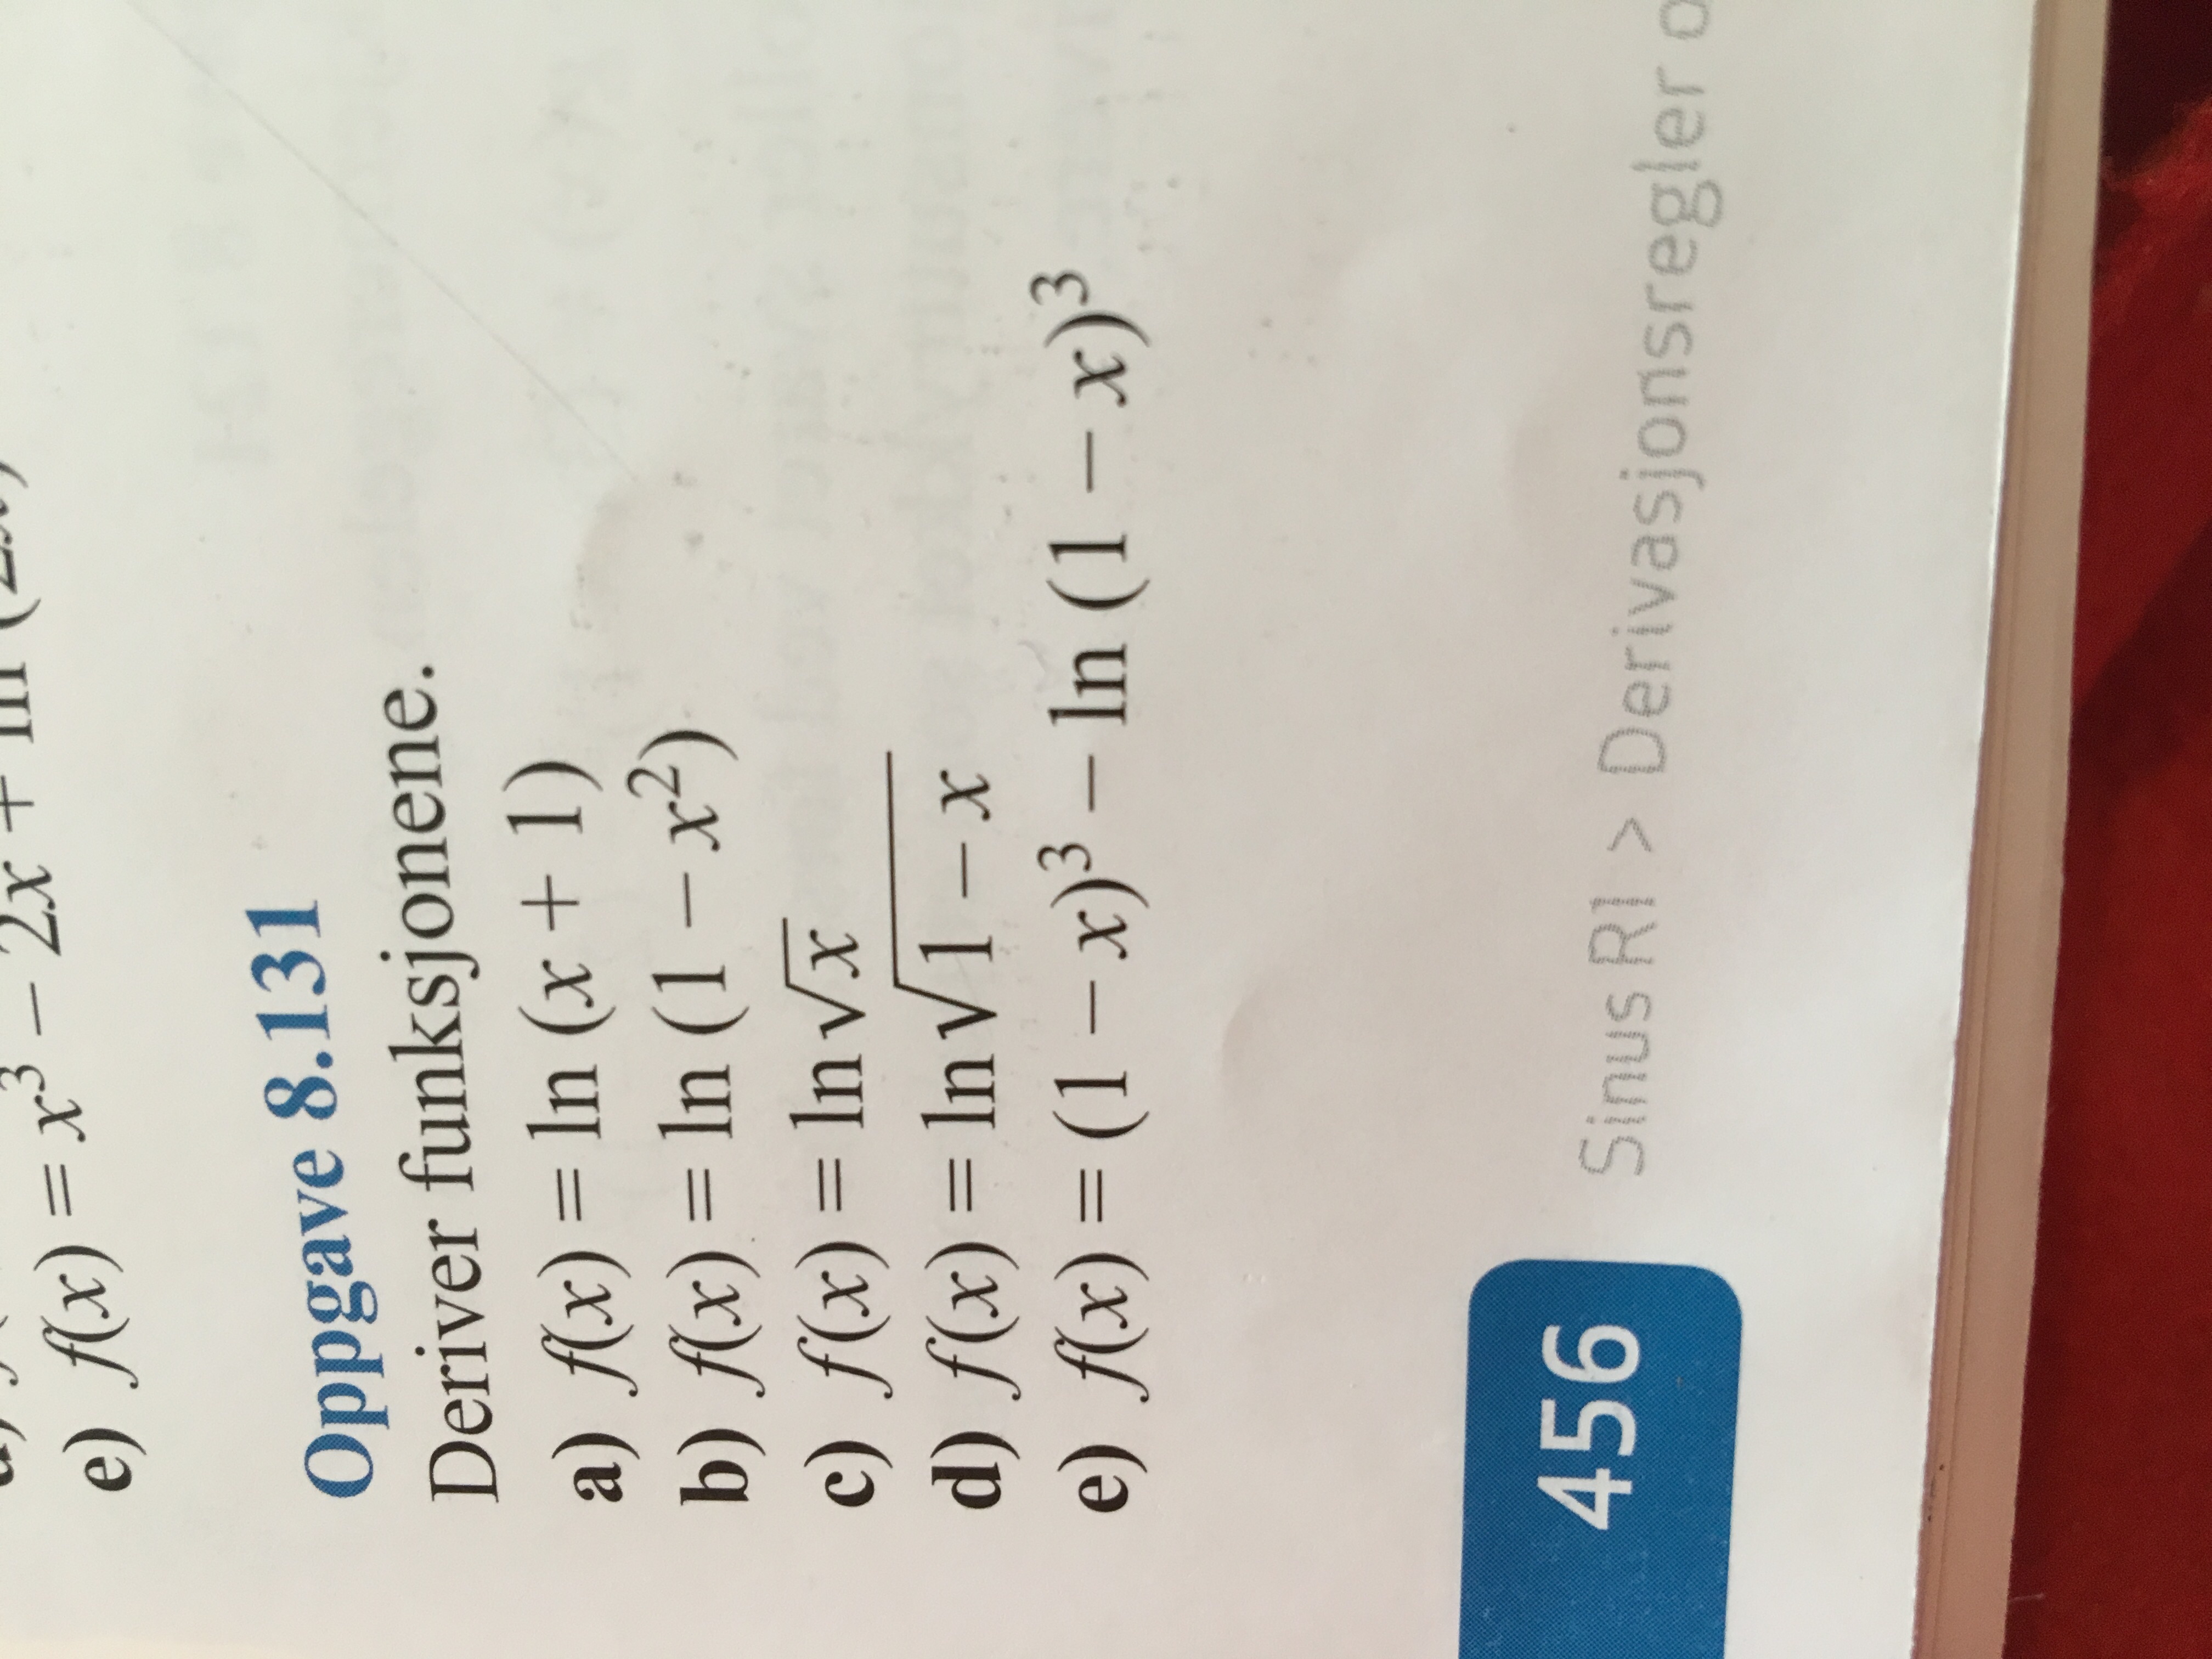 e) f(x) = x³ − 2x + ln (2x)
Oppgave 8.131
Deriver funksjonene.
a) f(x) = ln (x + 1)
b) f(x) = ln (1 − x²)
c) f(x) = ln √x
d) f(x) = ln √1 − x
e) f(x) = (1 − x)³ − ln (1 − x)³
456 Sinus R1 > Derivasjonsregler